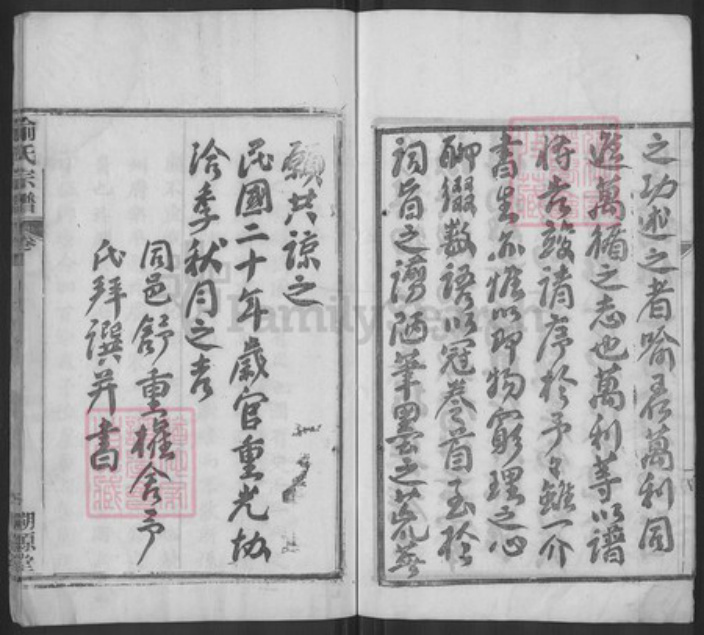 之功述之者喻君萬利同
進萬循之志也萬利等以譜
將告竣請序於予予雖一介
書生亦惟以即物窮理之心
聊綴數語以冠卷首至於
詞旨之謭陋筆墨之荒蕪
願共諒之
民國二十年歲官重光協
洽季秋月之吉
同邑舒重權舍予
氏拜譔并書
喻氏宗譜
卷
湖源堂
FamilySearch